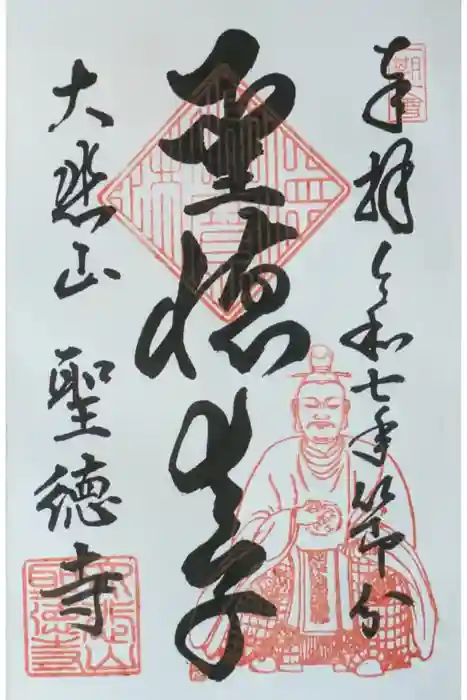 奉拝 令和七年節分
聖徳太子
大悲山 聖徳寺